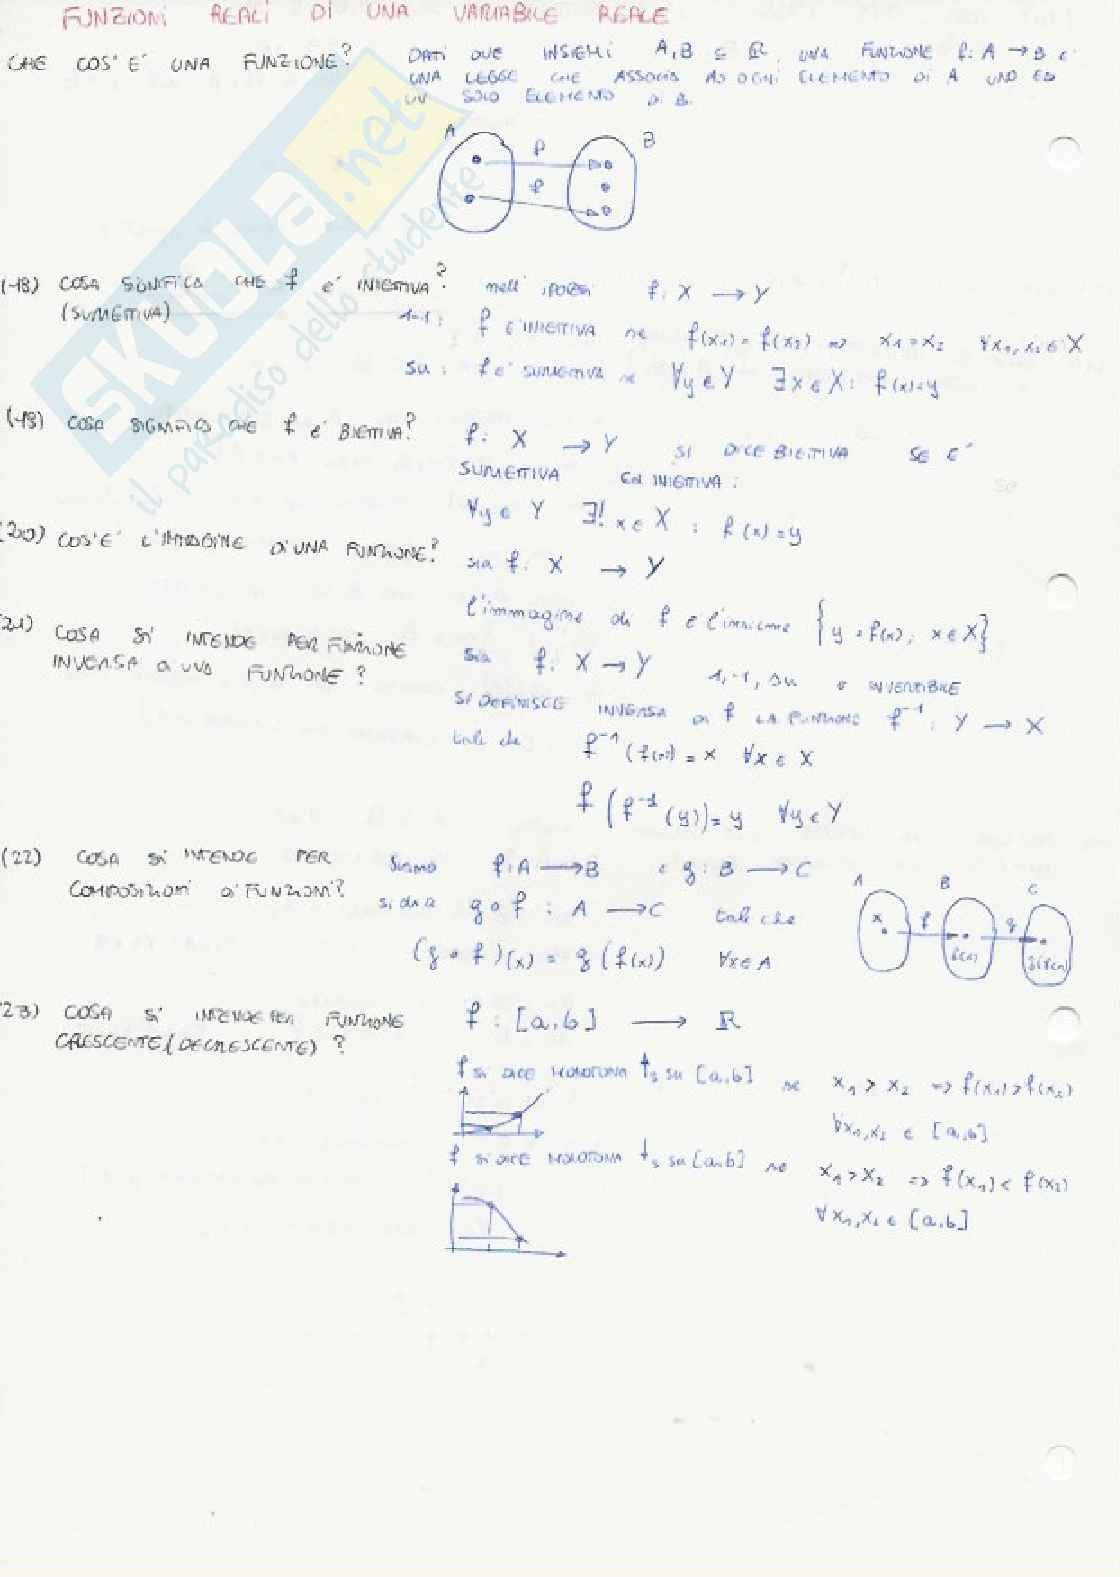 FUNZIONI REALI DI UNA VARIABILE REALE
CHE COS'E' UNA FUNZIONE?
DATI DUE INSIEMI A, B ⊆ ℝ, UNA FUNZIONE f: A → B E'
UNA LEGGE CHE ASSOCIA AD OGNI ELEMENTO DI A UNO ED
UN SOLO ELEMENTO DI B.
A B
f
f
(18) COSA SIGNIFICA CHE f E' INIETTIVA?
(SURIETTIVA)
nell' ipotesi f: X → Y
1-1: f E' INIETTIVA se f(x1) = f(x2) => x1 = x2 ∀x1, x2 ∈ X
su: f E' SURIETTIVA se ∀y ∈ Y ∃x ∈ X: f(x)=y
(19) COSA SIGNIFICA CHE f E' BIETTIVA?
f: X → Y SI DICE BIETTIVA SE E'
SURIETTIVA ED INIETTIVA:
∀y ∈ Y ∃! x ∈ X : f(x)=y
(20) COS'E' L'IMMAGINE DI UNA FUNZIONE?
sia f: X → Y
l'immagine di f è l'insieme {y = f(x); x ∈ X}
(21) COSA SI INTENDE PER FUNZIONE
INVERSA A UNA FUNZIONE?
sia f: X → Y 1-1, su INVERTIBILE
SI DEFINISCE INVERSA DI f LA FUNZIONE f⁻¹: Y → X
tale che f⁻¹(f(x)) = x ∀x ∈ X
f(f⁻¹(y)) = y ∀y ∈ Y
(22) COSA SI INTENDE PER
COMPOSIZIONI DI FUNZIONI?
Siano f: A → B e g: B → C
si dice g∘f : A → C tale che
(g∘f)(x) = g(f(x)) ∀x ∈ A
A B C
x f f(x) g g(f(x))
(23) COSA SI INTENDE PER FUNZIONE
CRESCENTE (DECRESCENTE)?
f: [a,b] → ℝ
f SI DICE MONOTONA ↑s su [a,b] se x1 > x2 => f(x1) > f(x2)
∀x1, x2 ∈ [a,b]
f SI DICE MONOTONA ↓s su [a,b] se x1 > x2 => f(x1) < f(x2)
∀x1, x2 ∈ [a,b]
SKUOLA.net
il paradiso dello studente